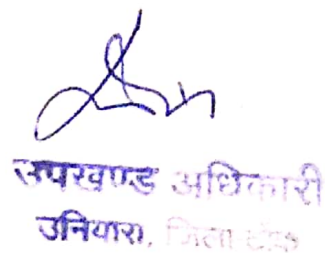 उपखण्ड अधिकारी
उनियारा, जिला टोंक